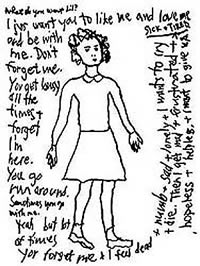 I just want you to like me and love me
and be with
me. Don't
forget me.
You get busy
all the
times +
forget
I'm
here.
You go
run around.
Sometimes you go
with me.
Yeah but lot
of times
you forget me + I feel dead
+ numb + sad + lonely + I wants to cry
+ die. Then I get mad + frustrated +
hopeless + helpless. I want to give up.